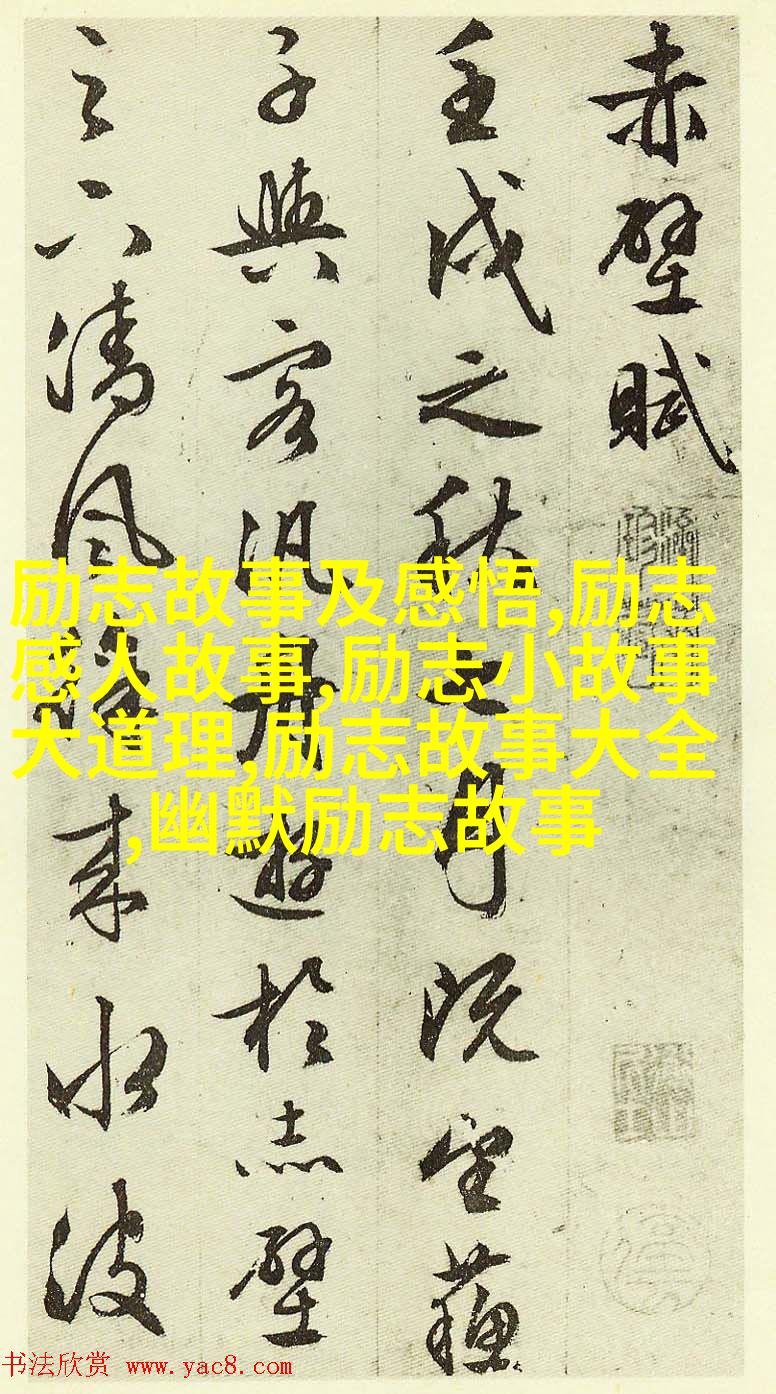 赤壁賦
壬戌之秋七月既望蘓
子與客汎舟遊於赤壁
之下清風徐来水波
励志故事及感悟,励志
感人故事,励志小故事
大道理,励志故事大全
,幽默励志故事
书法欣赏 www.yac8.com